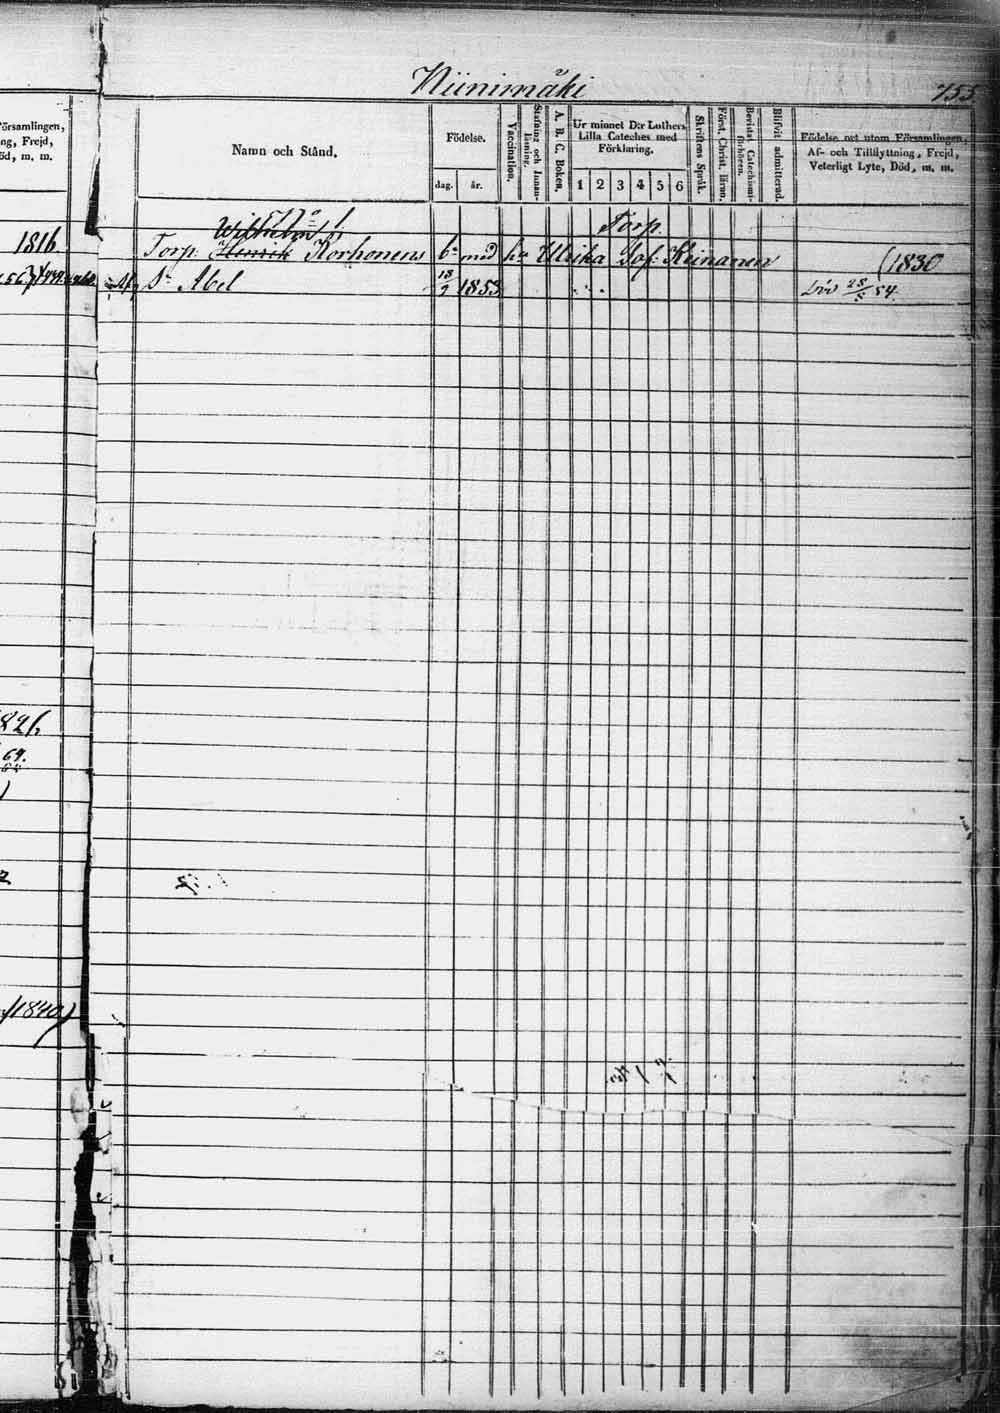 Niinimäki
455
Församlingen,
ng, Frejd,
öd, m. m.
Namn och Stånd.
Födelse.
dag. år.
Vaccination.
Stafning och Innan-läsning.
A. B. C. Boken.
Ur minnet D:r Luthers Lilla Cateches med Förklaring.
1 2 3 4 5 6
Skriftens Språk.
Först. Christ. läran.
Bevistat Catechismi-förhören.
Blifvit admitterad.
Födelse ort utom Församlingen,
Af- och Tillflyttning, Frejd,
Veterligt Lyte, Död, m. m.
Torp.
Wilhelm
Torp. Henrik Korhonens med h:u Ulrika Sof: Keinanen (1830
S. Abel 18/9 1853 Död 28/5 54.
1816
56
1826
64.
1840)